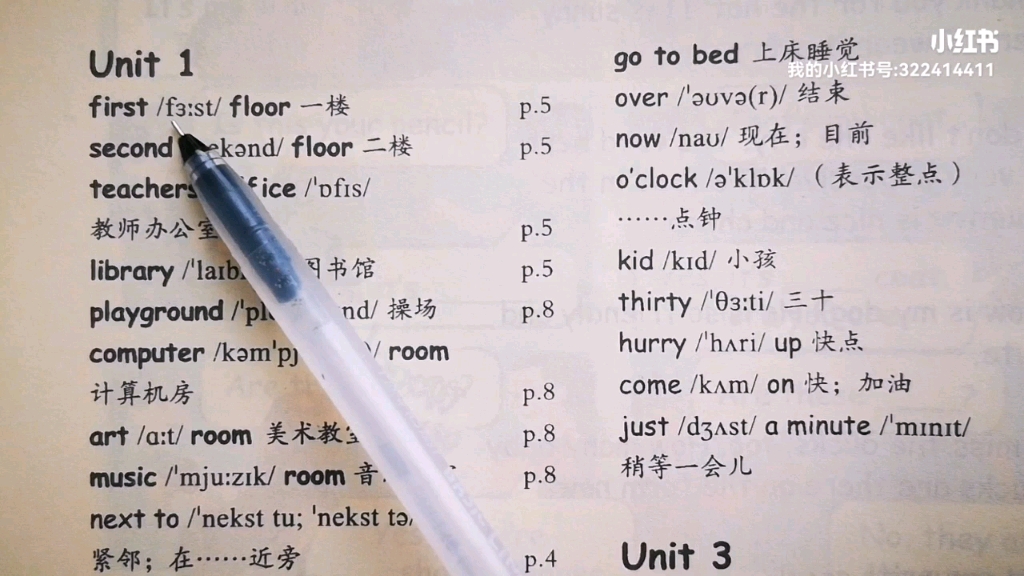 Unit 1
first /fɜːst/ floor 一楼 p.5
second ekənd/ floor 二楼 p.5
teachers ice /ˈɒfɪs/
教师办公室 p.5
library /ˈlaɪb 图书馆 p.5
playground /ˈpl nd/ 操场 p.8
computer /kəmˈpj / room
计算机房 p.8
art /ɑːt/ room 美术教室 p.8
music /ˈmjuːzɪk/ room 音 p.8
next to /ˈnekst tu; ˈnekst tə/
紧邻；在……近旁 p.4
go to bed 上床睡觉
over /ˈəʊvə(r)/ 结束
now /naʊ/ 现在；目前
o'clock /əˈklɒk/（表示整点）
……点钟
kid /kɪd/ 小孩
thirty /ˈθɜːti/ 三十
hurry /ˈhʌri/ up 快点
come /kʌm/ on 快；加油
just /dʒʌst/ a minute /ˈmɪnɪt/
稍等一会儿
Unit 3
小红书
我的小红书号:322414411